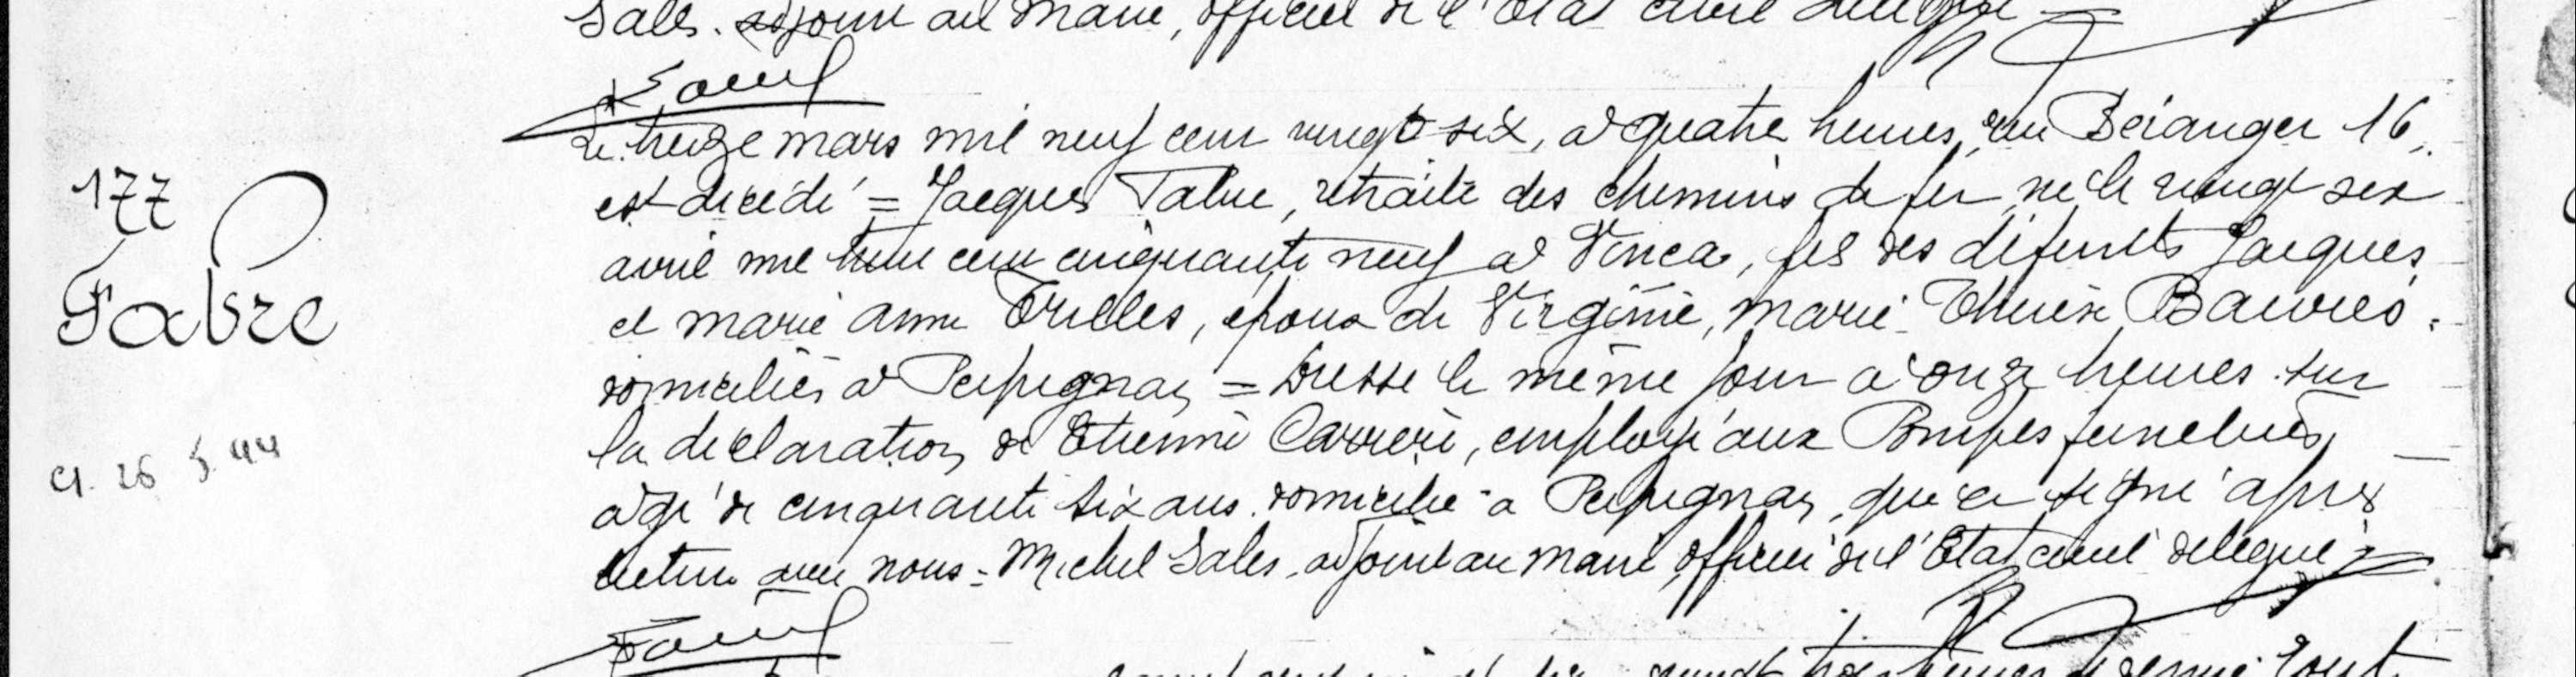 Sales. adjoint au Maire, officier de l'Etat civil délégué =
Le treize mars mil neuf cent vingt six, à quatre heures, rue Béranger 16,
est décédé = Jacques Fabre, retraité des chemins de fer né le vingt six
177
avril mil huit cent cinquante neuf à Vinca, fils des défunts Jacques
Fabre
et marie anne Trilles, époux de Virginie, marie Thérèse Baurès.
domiciliés à Perpignan = Dressé le même jour à onze heures sur
la déclaration de Etienne Carrère, employé aux Pompes funèbres,
ct. 26 § 44
agé de cinquante six ans. domicilié à Perpignan, qui a signé après
lecture avec nous = Michel Sales, adjoint au maire, officier de l'Etat civil délégué =